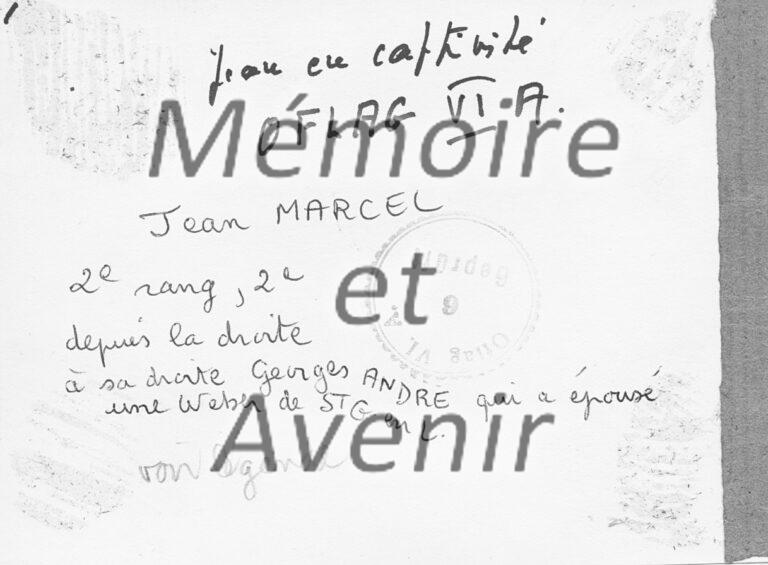 Jean en captivité
OFLAG VI A.
Mémoire
Jean MARCEL
2e rang, 2e
et
Geprüft
9
Oflag VI A
depuis la droite
à sa droite Georges ANDRE qui a épousé
une Weber de ST G en L.
Avenir
voir